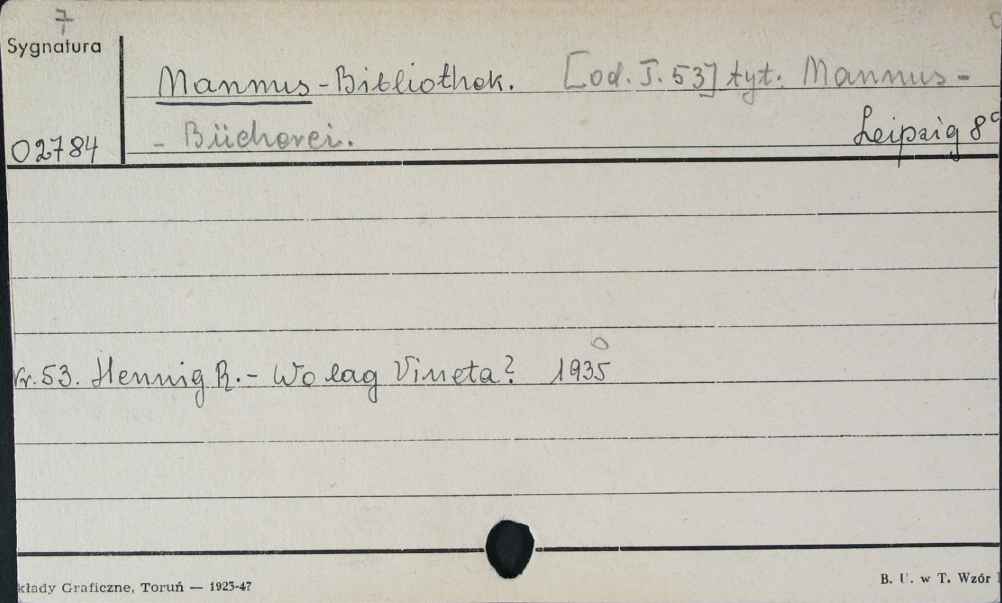 7
Sygnatura
Mannus-Bibliothek. [od. T. 53] tyt. Mannus-
- Bücherei.
Leipzig 8°
02784
Nr. 53. Hennig R. - Wo lag Vineta? 1935
kłady Graficzne, Toruń — 1923-47
B. U. w T. Wzór